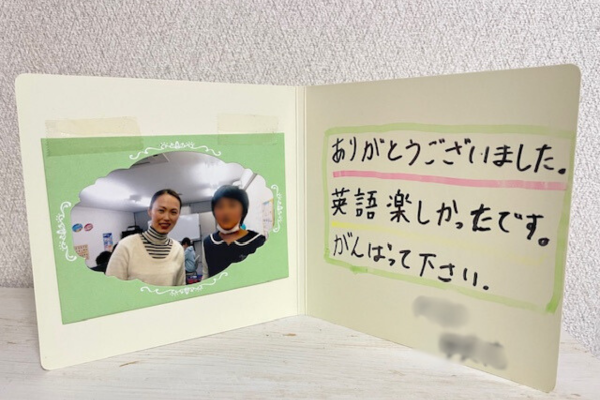 ありがとうございました。
英語楽しかったです。
がんばって下さい。